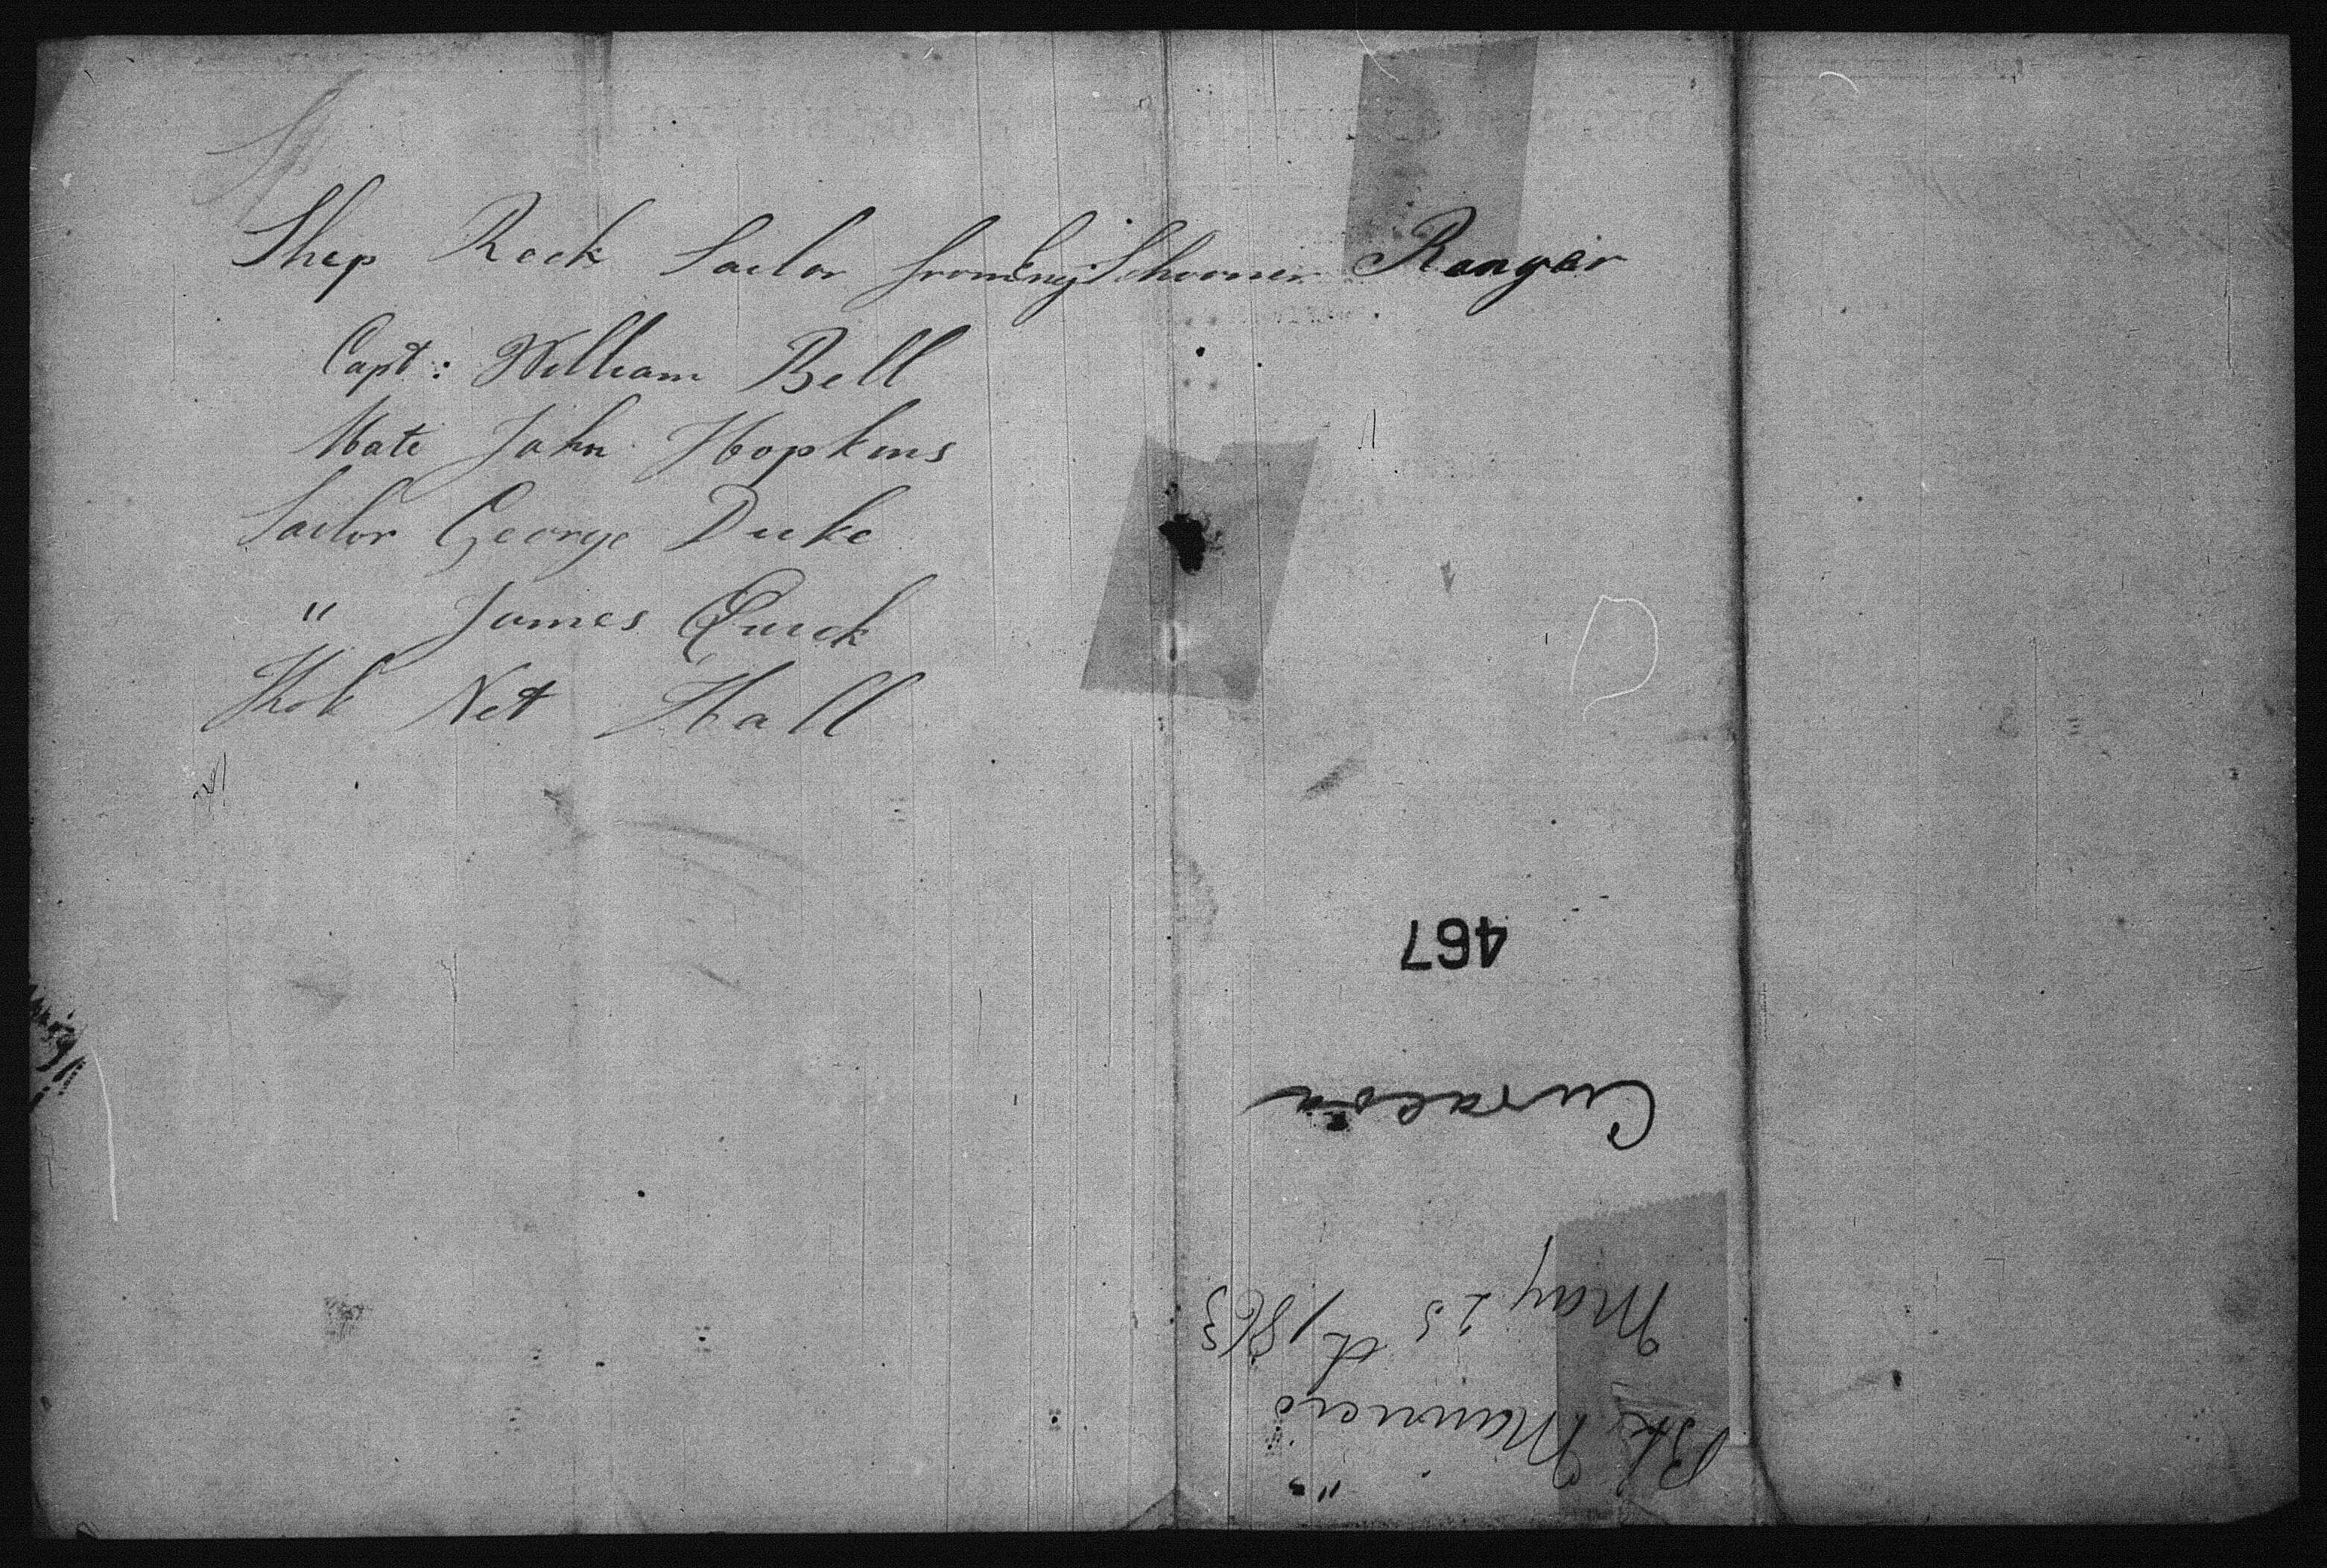 Ship Rock Sailor from Eng Schooner Ranger
Capt: William Bell
Mate John Hopkins
Sailor George Duke
" James Quick
Kok Net Hall
467
Curacoa
May 25 th 1863
Bk Maineiro
"